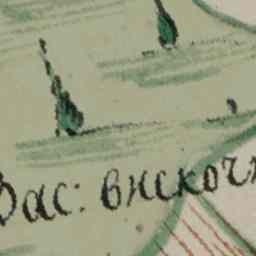 Вас: внскоч